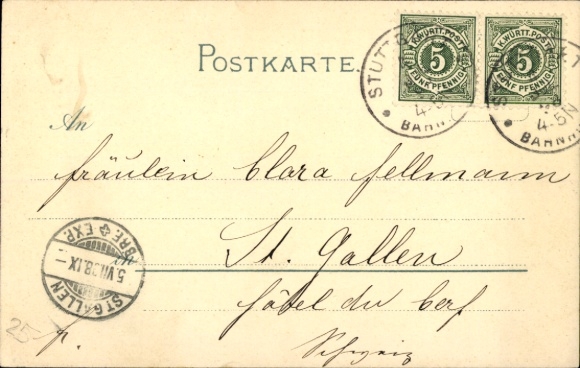 POSTKARTE.
K. WÜRTT. POST
5
FÜNF PFENNIG
K. WÜRTT. POST
5
FÜNF PFENNIG
STUTTG
4-5N
BAHN
4-5N
BAHN
An
Fräulein Clara Fellmann
in
St. Gallen
Hôtel du Cerf
Schweiz
ST. GALLEN
5.VII.98.IX-
BRF. EXP.
25